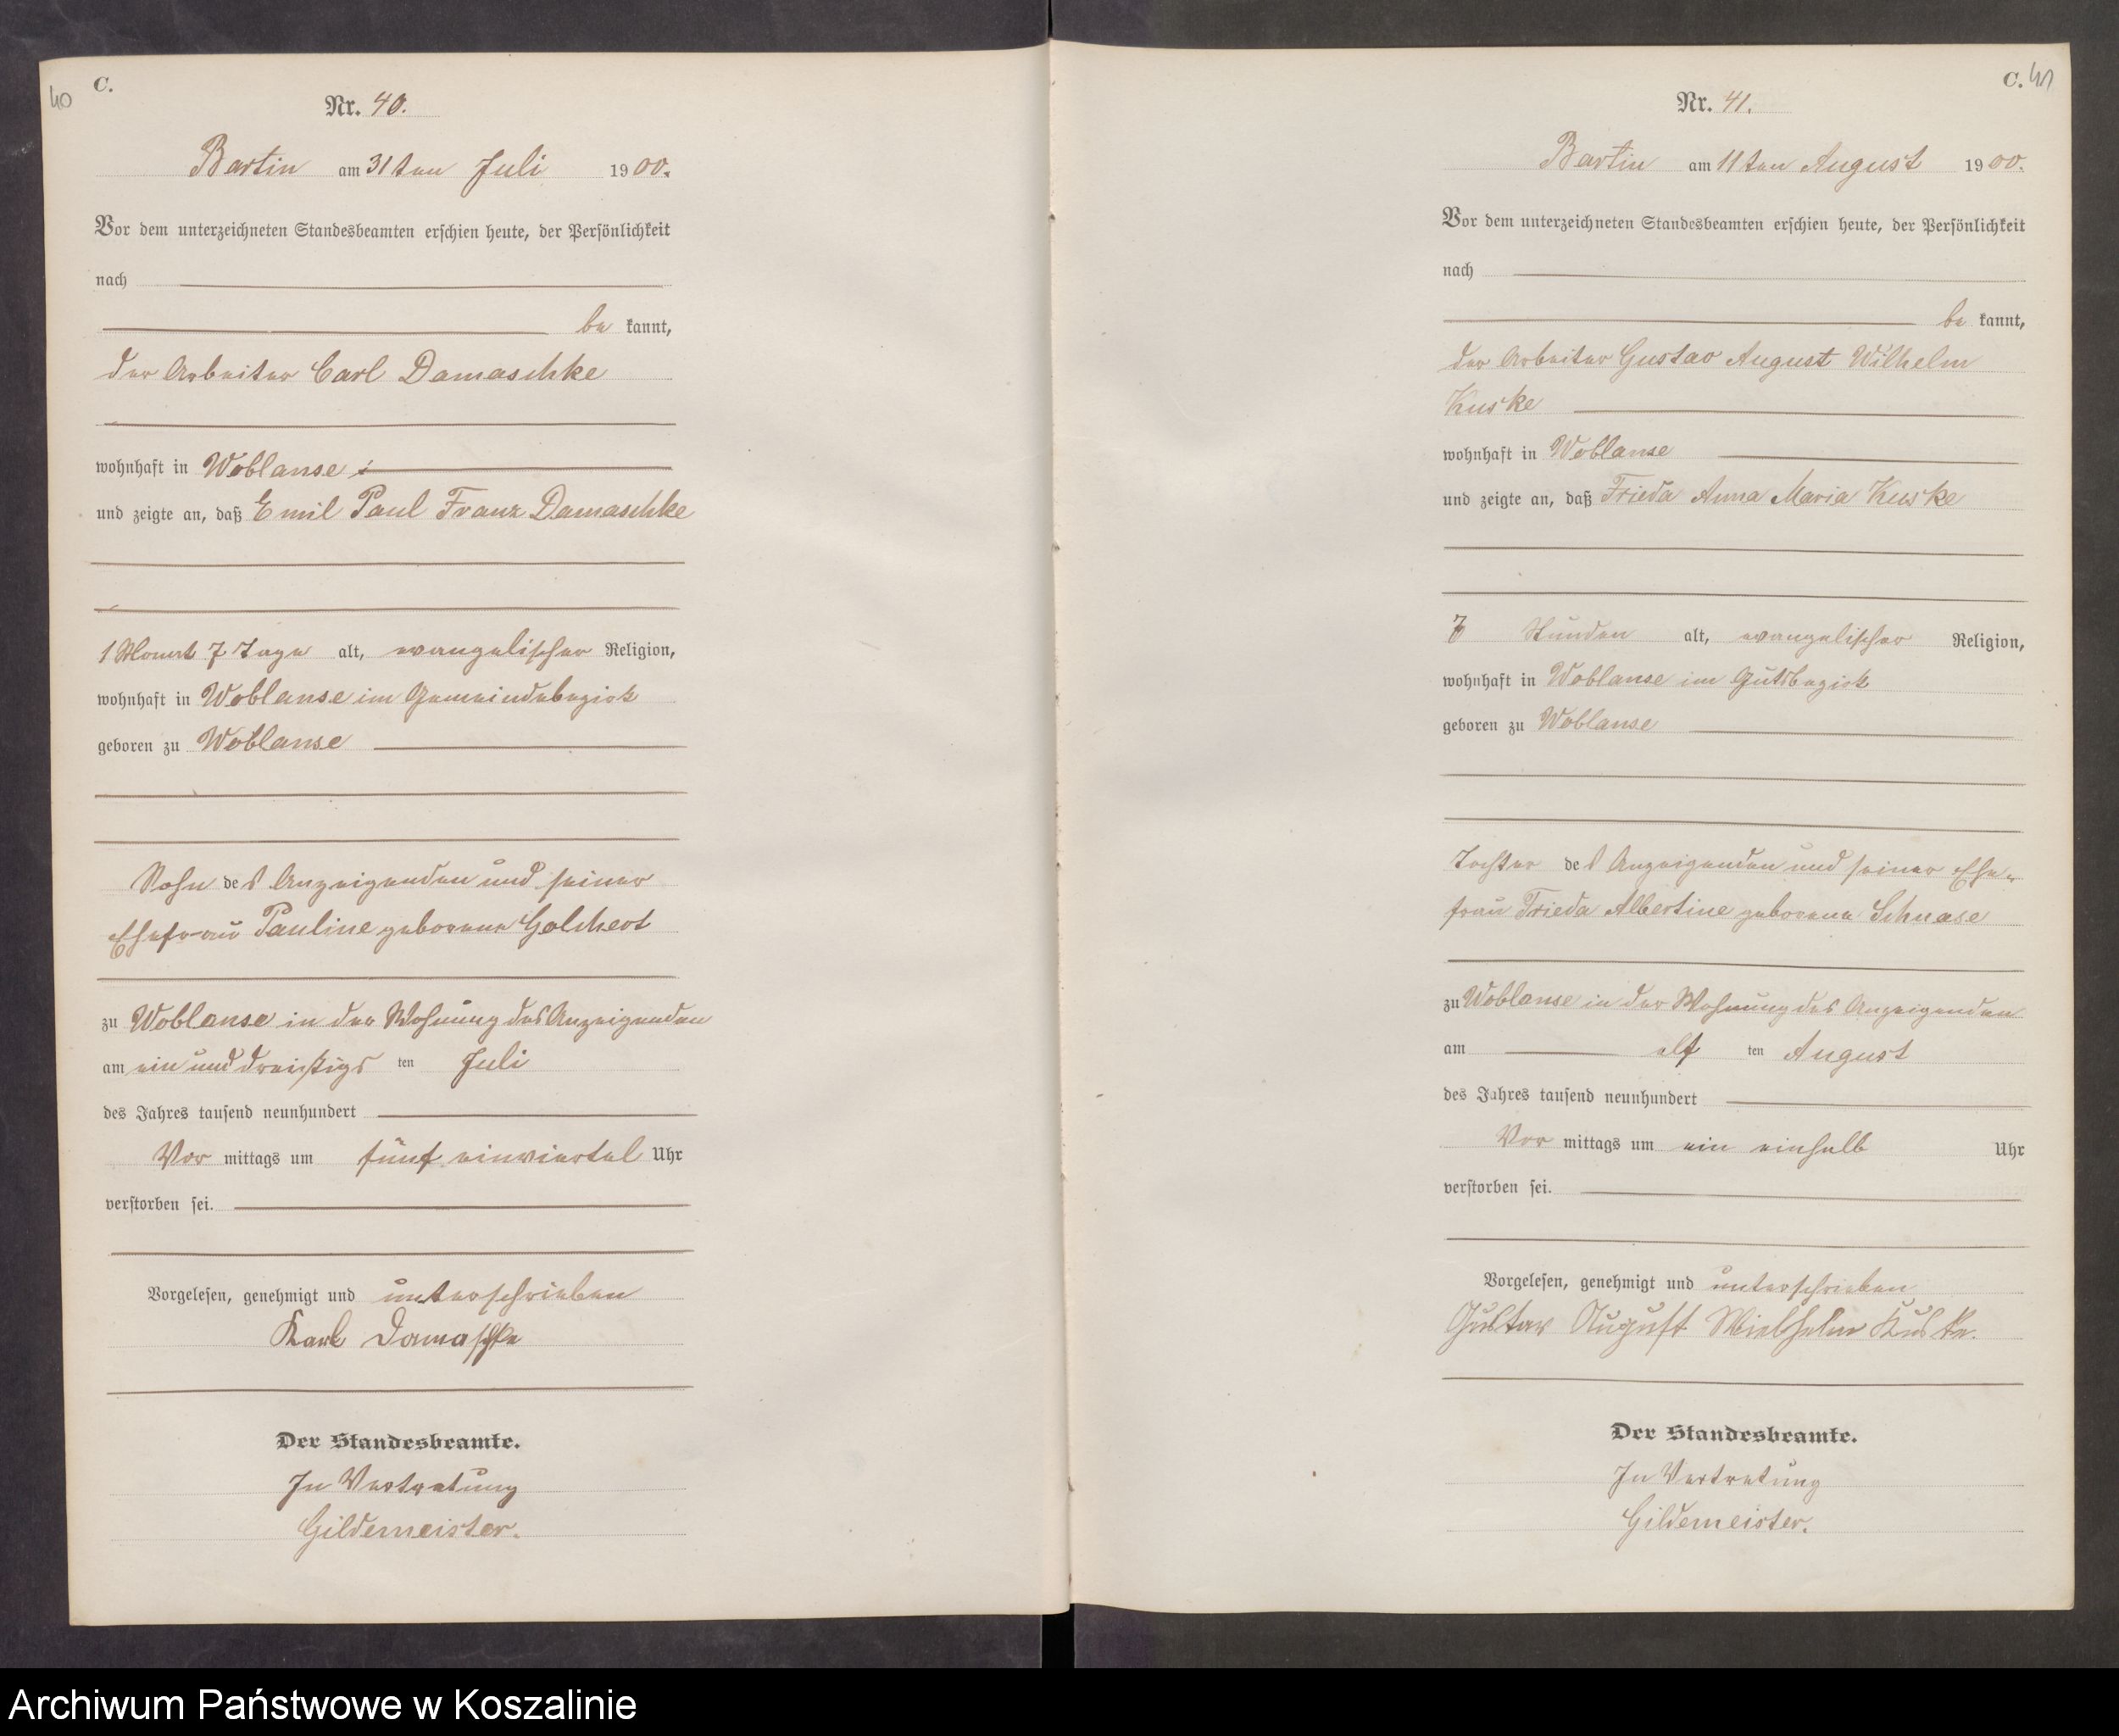 40
C.
Nr. 40.
Bartin am 31ten Juli 1900.
Vor dem unterzeichneten Standesbeamten erschien heute, der Persönlichkeit
nach
be kannt,
der Arbeiter Carl Damaschke
wohnhaft in Woblanse
und zeigte an, daß Emil Paul Franz Damaschke
1 Monat 7 Tage alt, evangelischer Religion,
wohnhaft in Woblanse im Gemeindebezirk
geboren zu Woblanse
Sohn des Anzeigenden und seiner
Ehefrau Pauline geborene Golchert
zu Woblanse in der Wohnung des Anzeigenden
am ein und dreißigs ten Juli
des Jahres tausend neunhundert
Vor mittags um fünf einviertel Uhr
verstorben sei.
Vorgelesen, genehmigt und unterschrieben
Karl Damaschke
Der Standesbeamte.
In Vertretung
Gildemeister.
C. 41
Nr. 41.
Bartin am 11ten August 1900.
Vor dem unterzeichneten Standesbeamten erschien heute, der Persönlichkeit
nach
be kannt,
der Arbeiter Gustav August Wilhelm
Kuske
wohnhaft in Woblanse
und zeigte an, daß Frieda Anna Maria Kuske
Stunden alt, evangelischer Religion,
wohnhaft in Woblanse im Gutsbezirk
geboren zu Woblanse
Tochter des Anzeigenden und seiner Ehe-
frau Frieda Albertine geborene Schnase
zu Woblanse in der Wohnung des Anzeigenden
am elf ten August
des Jahres tausend neunhundert
Vor mittags um ein einhalb Uhr
verstorben sei.
Vorgelesen, genehmigt und unterschrieben
Gustav August Wielhelm Kuske.
Der Standesbeamte.
In Vertretung
Gildemeister.
Archiwum Państwowe w Koszalinie